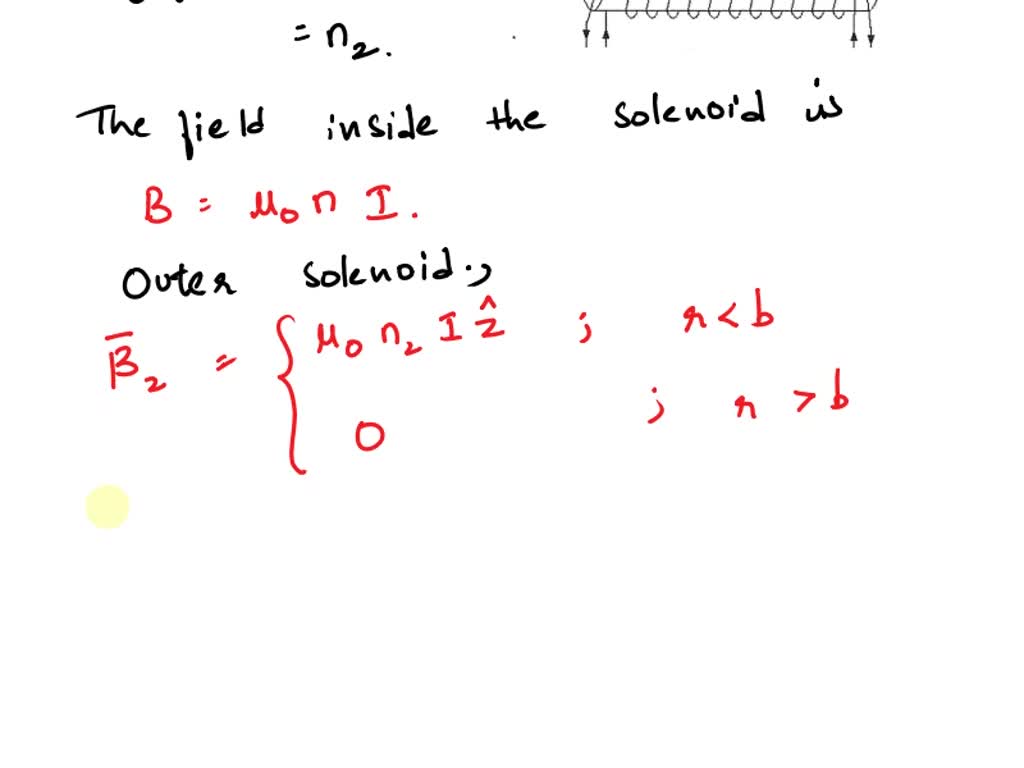 = n₂.
The field inside the solenoid is
B = μ₀ n I.
Outer solenoid.,
B̅₂ = { μ₀ n₂ I ẑ ; r < b
0 ; r > b